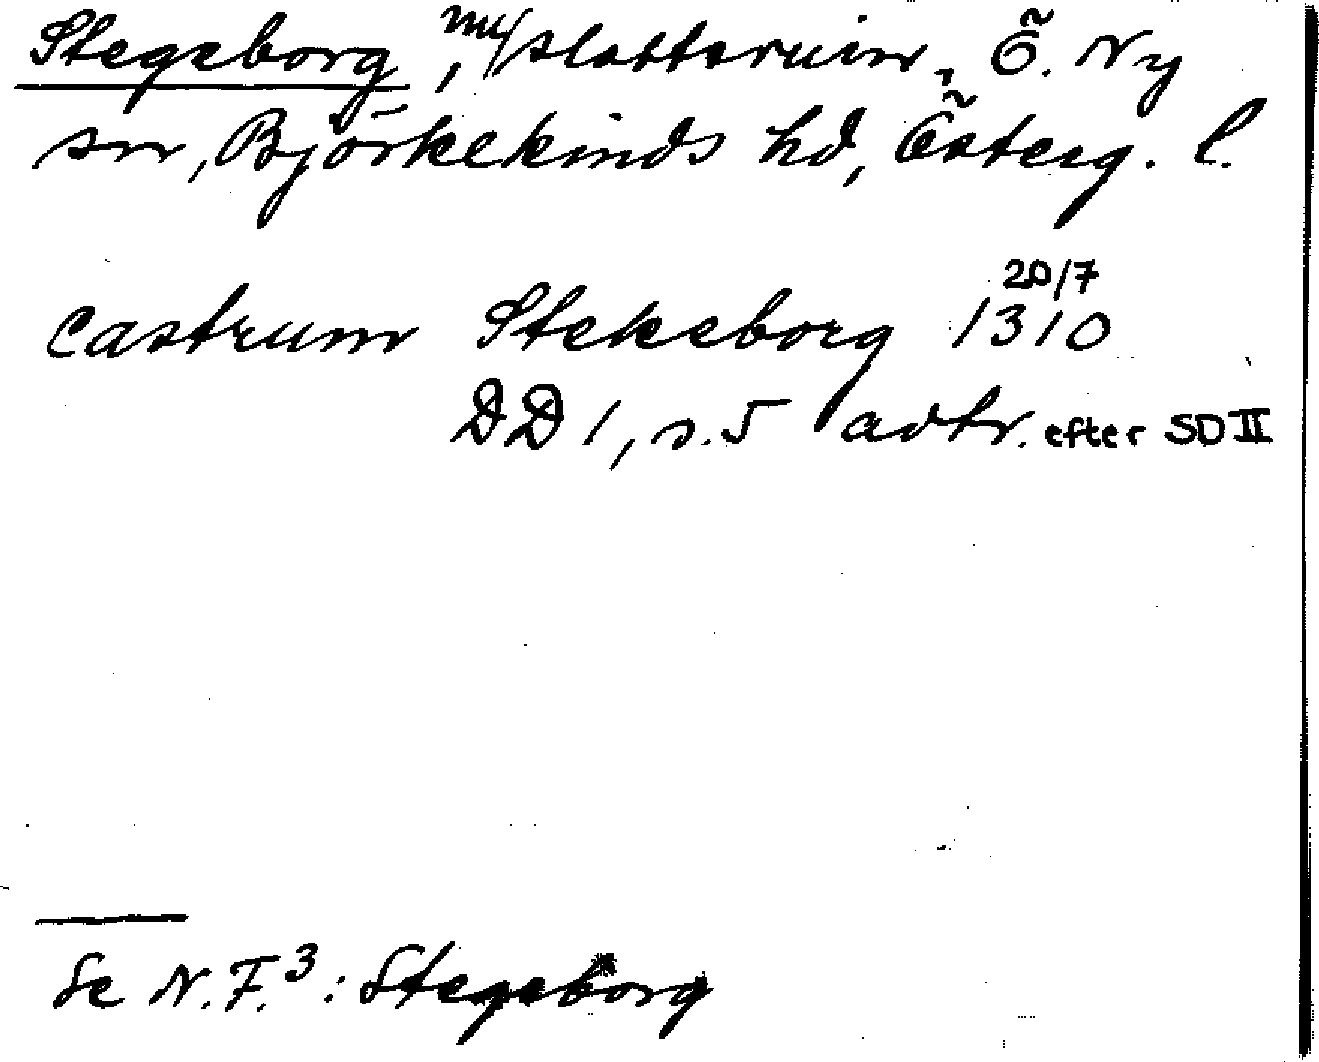 Stegeborg, nu/ slottsruin, Ö. Ny
sn, Björkekinds hd, Österg. l.
castrum Stekeborg 20/7 1310
DD 1, s. 5 avtr. efter SD II
Se N.F.3: Stegeborg